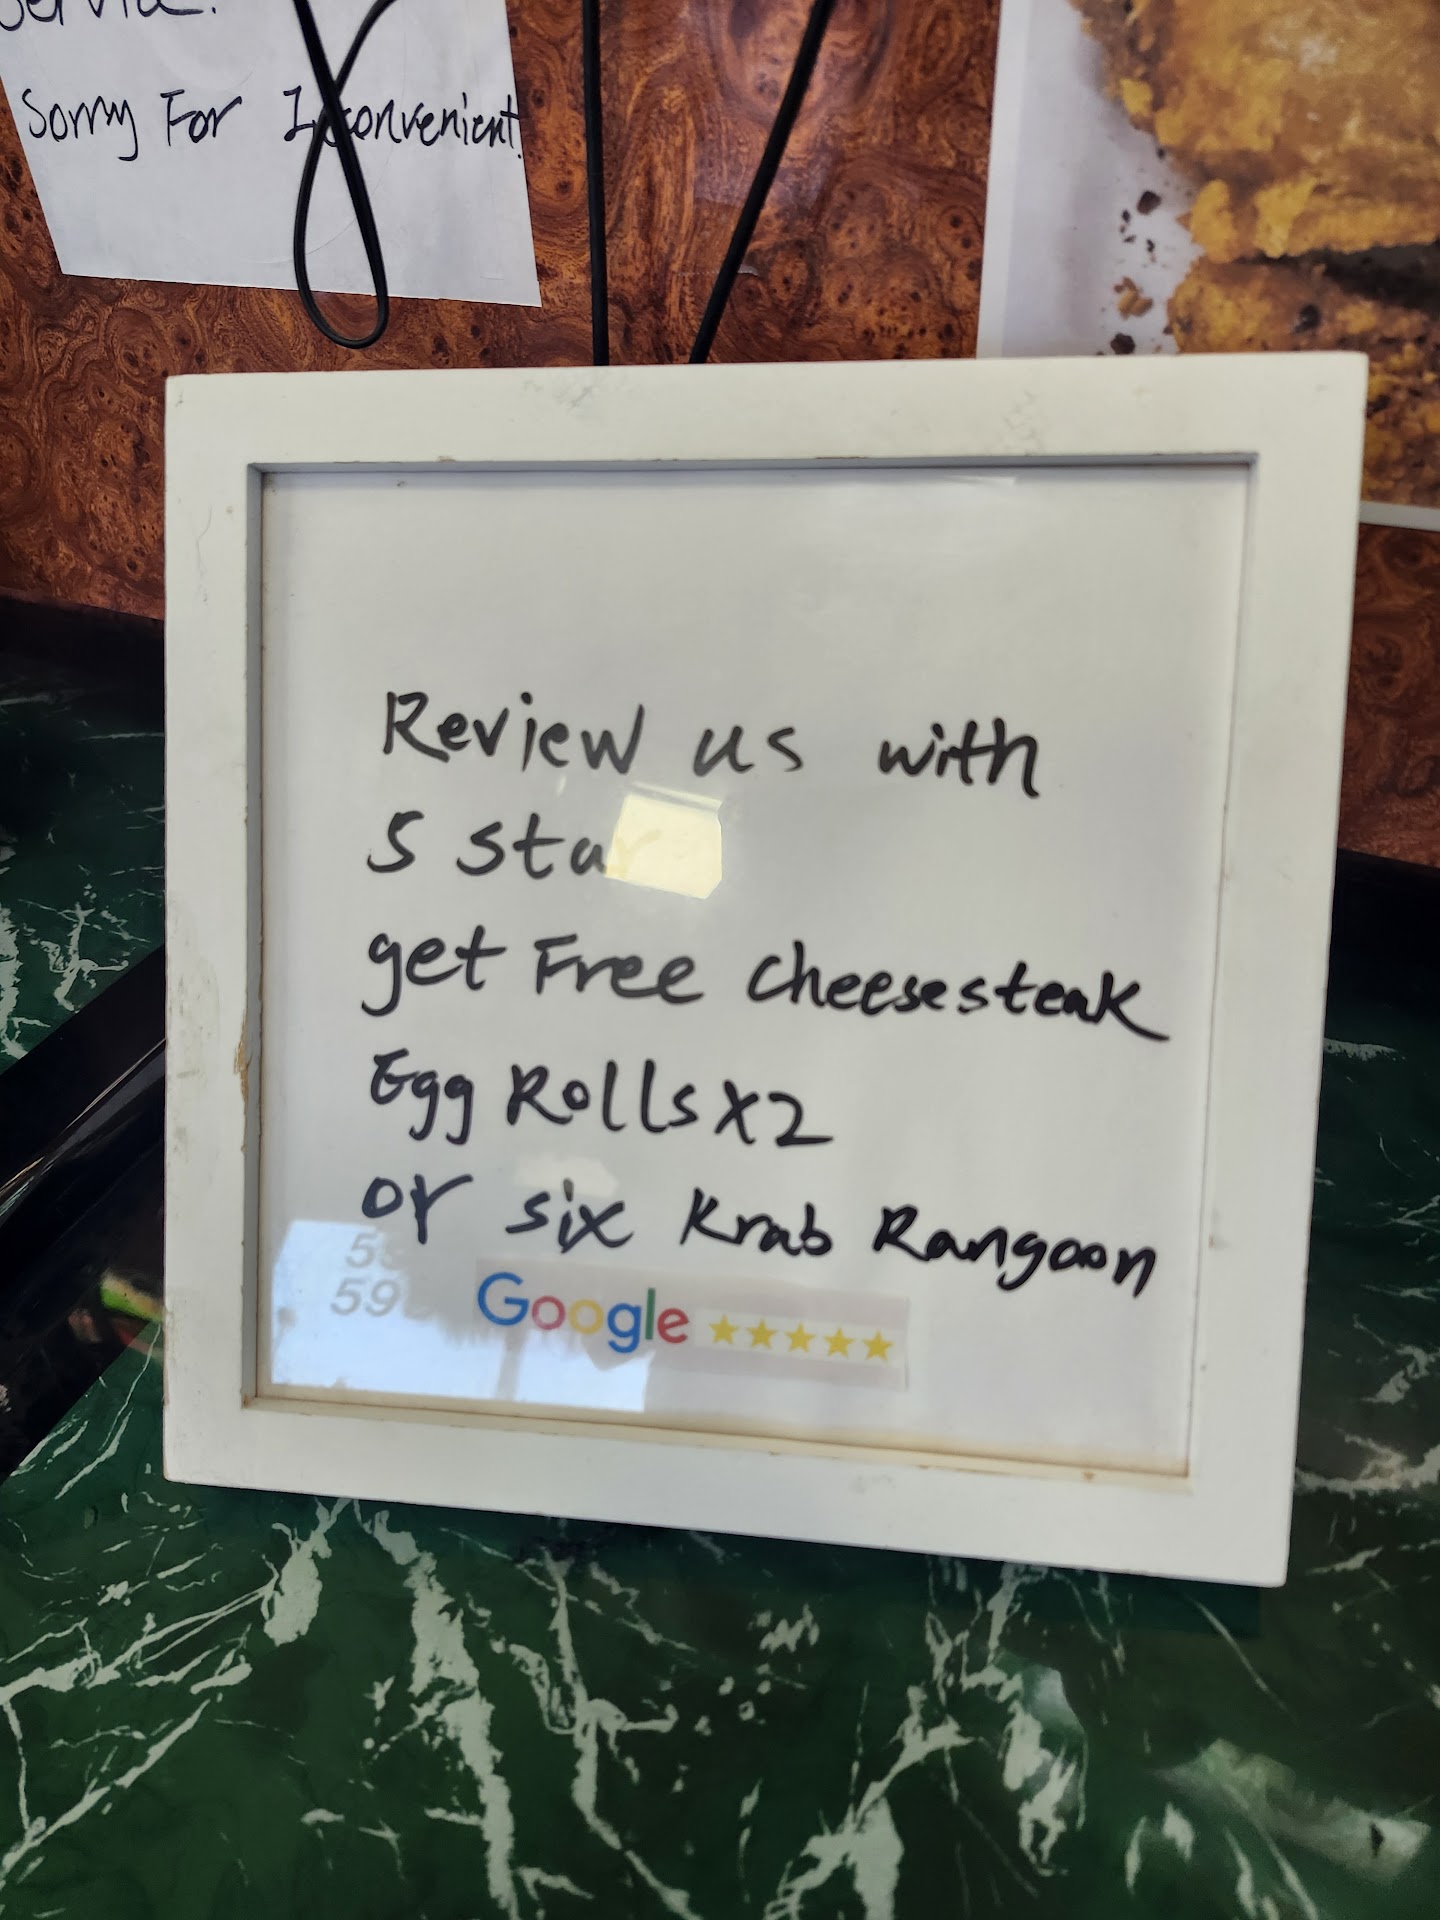 Sorry For Inconvenient!
Review us with
5 star
get Free Cheesesteak
Egg Rolls x2
or six Krab Rangoon
Google